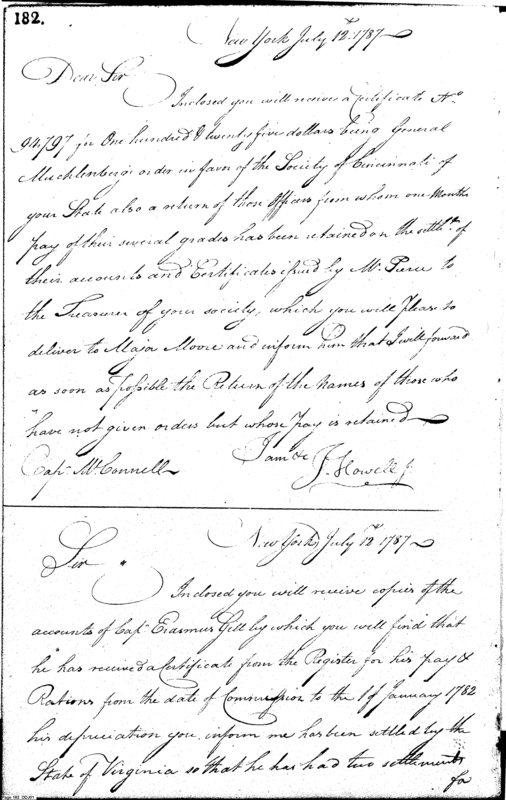 182.
New York July 12th 1787
Dear Sir
Inclosed you will receive a Certificate No
94797 for One hundred & twenty five dollars being General
Mucklenberg's order in favor of the Society of Cincinnati of
your State also a return of those Officers from whom one Months
pay of their several grades has been retained on the settlt. of
their accounts and Certificates issued by Mr. Pierce to
the Treasurer of your society, which you will please to
deliver to Major Moore and inform him that I will forward
as soon as possible the Return of the Names of those who
have not given orders but whose pay is retained
Capt. McConnell I am &c J. Howell Jr
New York July 12th 1787
Sir
Inclosed you will receive copies of the
accounts of Capt. Erasmus Gill by which you will find that
he has received a Certificate from the Register for his pay &
Rations from the date of Commission to the 1 of January 1782
his depreciation you inform me has been settled by the
State of Virginia so that he has had two settlements
for